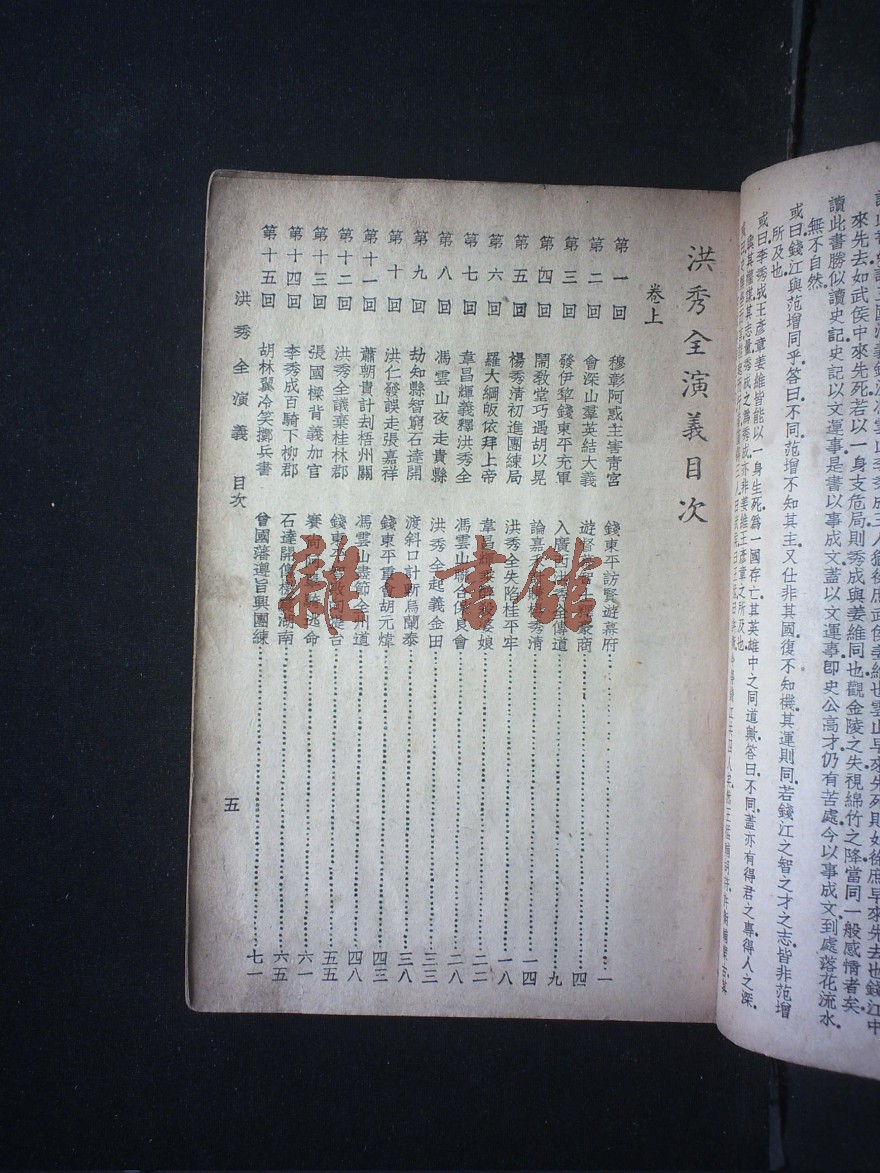 武侯姜維也雲山早來先死則如徐庶早來先去也錢江中
來先去如武侯中來先死若以一身支危局則秀成與姜維同也觀金陵之失視綿竹之降當同一般感情者矣
讀此書勝似讀史記史記以文運事是書以事成文蓋以文運事卽史公高才仍有苦處今以事成文到處落花流水
無不自然
或曰錢江與范增同乎答曰不同范增不知其主又仕非其國復不知機其運則同若錢江之智之才之志皆非范增
所及也
或曰李秀成王彥章姜維皆能以一身生死爲一國存亡其英雄中之同道歟答曰不同蓋亦有得君之專得人之深
與其權謀其志量秀成之爲秀成亦非姜維王彥章之所及也
洪秀全演義目次
卷上
第一回 穆彰阿惑主害靑宮 錢東平訪賢遊幕府 一
第二回 會深山羣英結大義 遊督 豪商 四
第三回 發伊犂錢東平充軍 入廣 秀全傳道 九
第四回 鬧敎堂巧遇胡以晃 論嘉 楊秀淸 一四
第五回 楊秀淸初進團練局 洪秀全失陷桂平牢 一八
第六回 羅大綱皈依拜上帝 韋昌 娘 二二
第七回 韋昌輝義釋洪秀全 馮雲山聯合保良會 二八
第八回 馮雲山夜走貴縣 洪秀全起義金田 三三
第九回 劫知縣智窮石達開 渡斜口計斬烏蘭泰 三八
第十回 洪仁發誤走張嘉祥 錢東平重會胡元煒 四三
第十一回 蕭朝貴計劫梧州關 馮雲山盡節全州道 四八
第十二回 洪秀全議棄桂林郡 錢東 五五
第十三回 張國樑背義加官 賽尙 逃命 六一
第十四回 李秀成百騎下柳郡 石達開傳 湖南 六五
第十五回 胡林翼冷笑擲兵書 曾國藩遵旨興團練 七一
洪秀全演義 目次 五
雜·書館